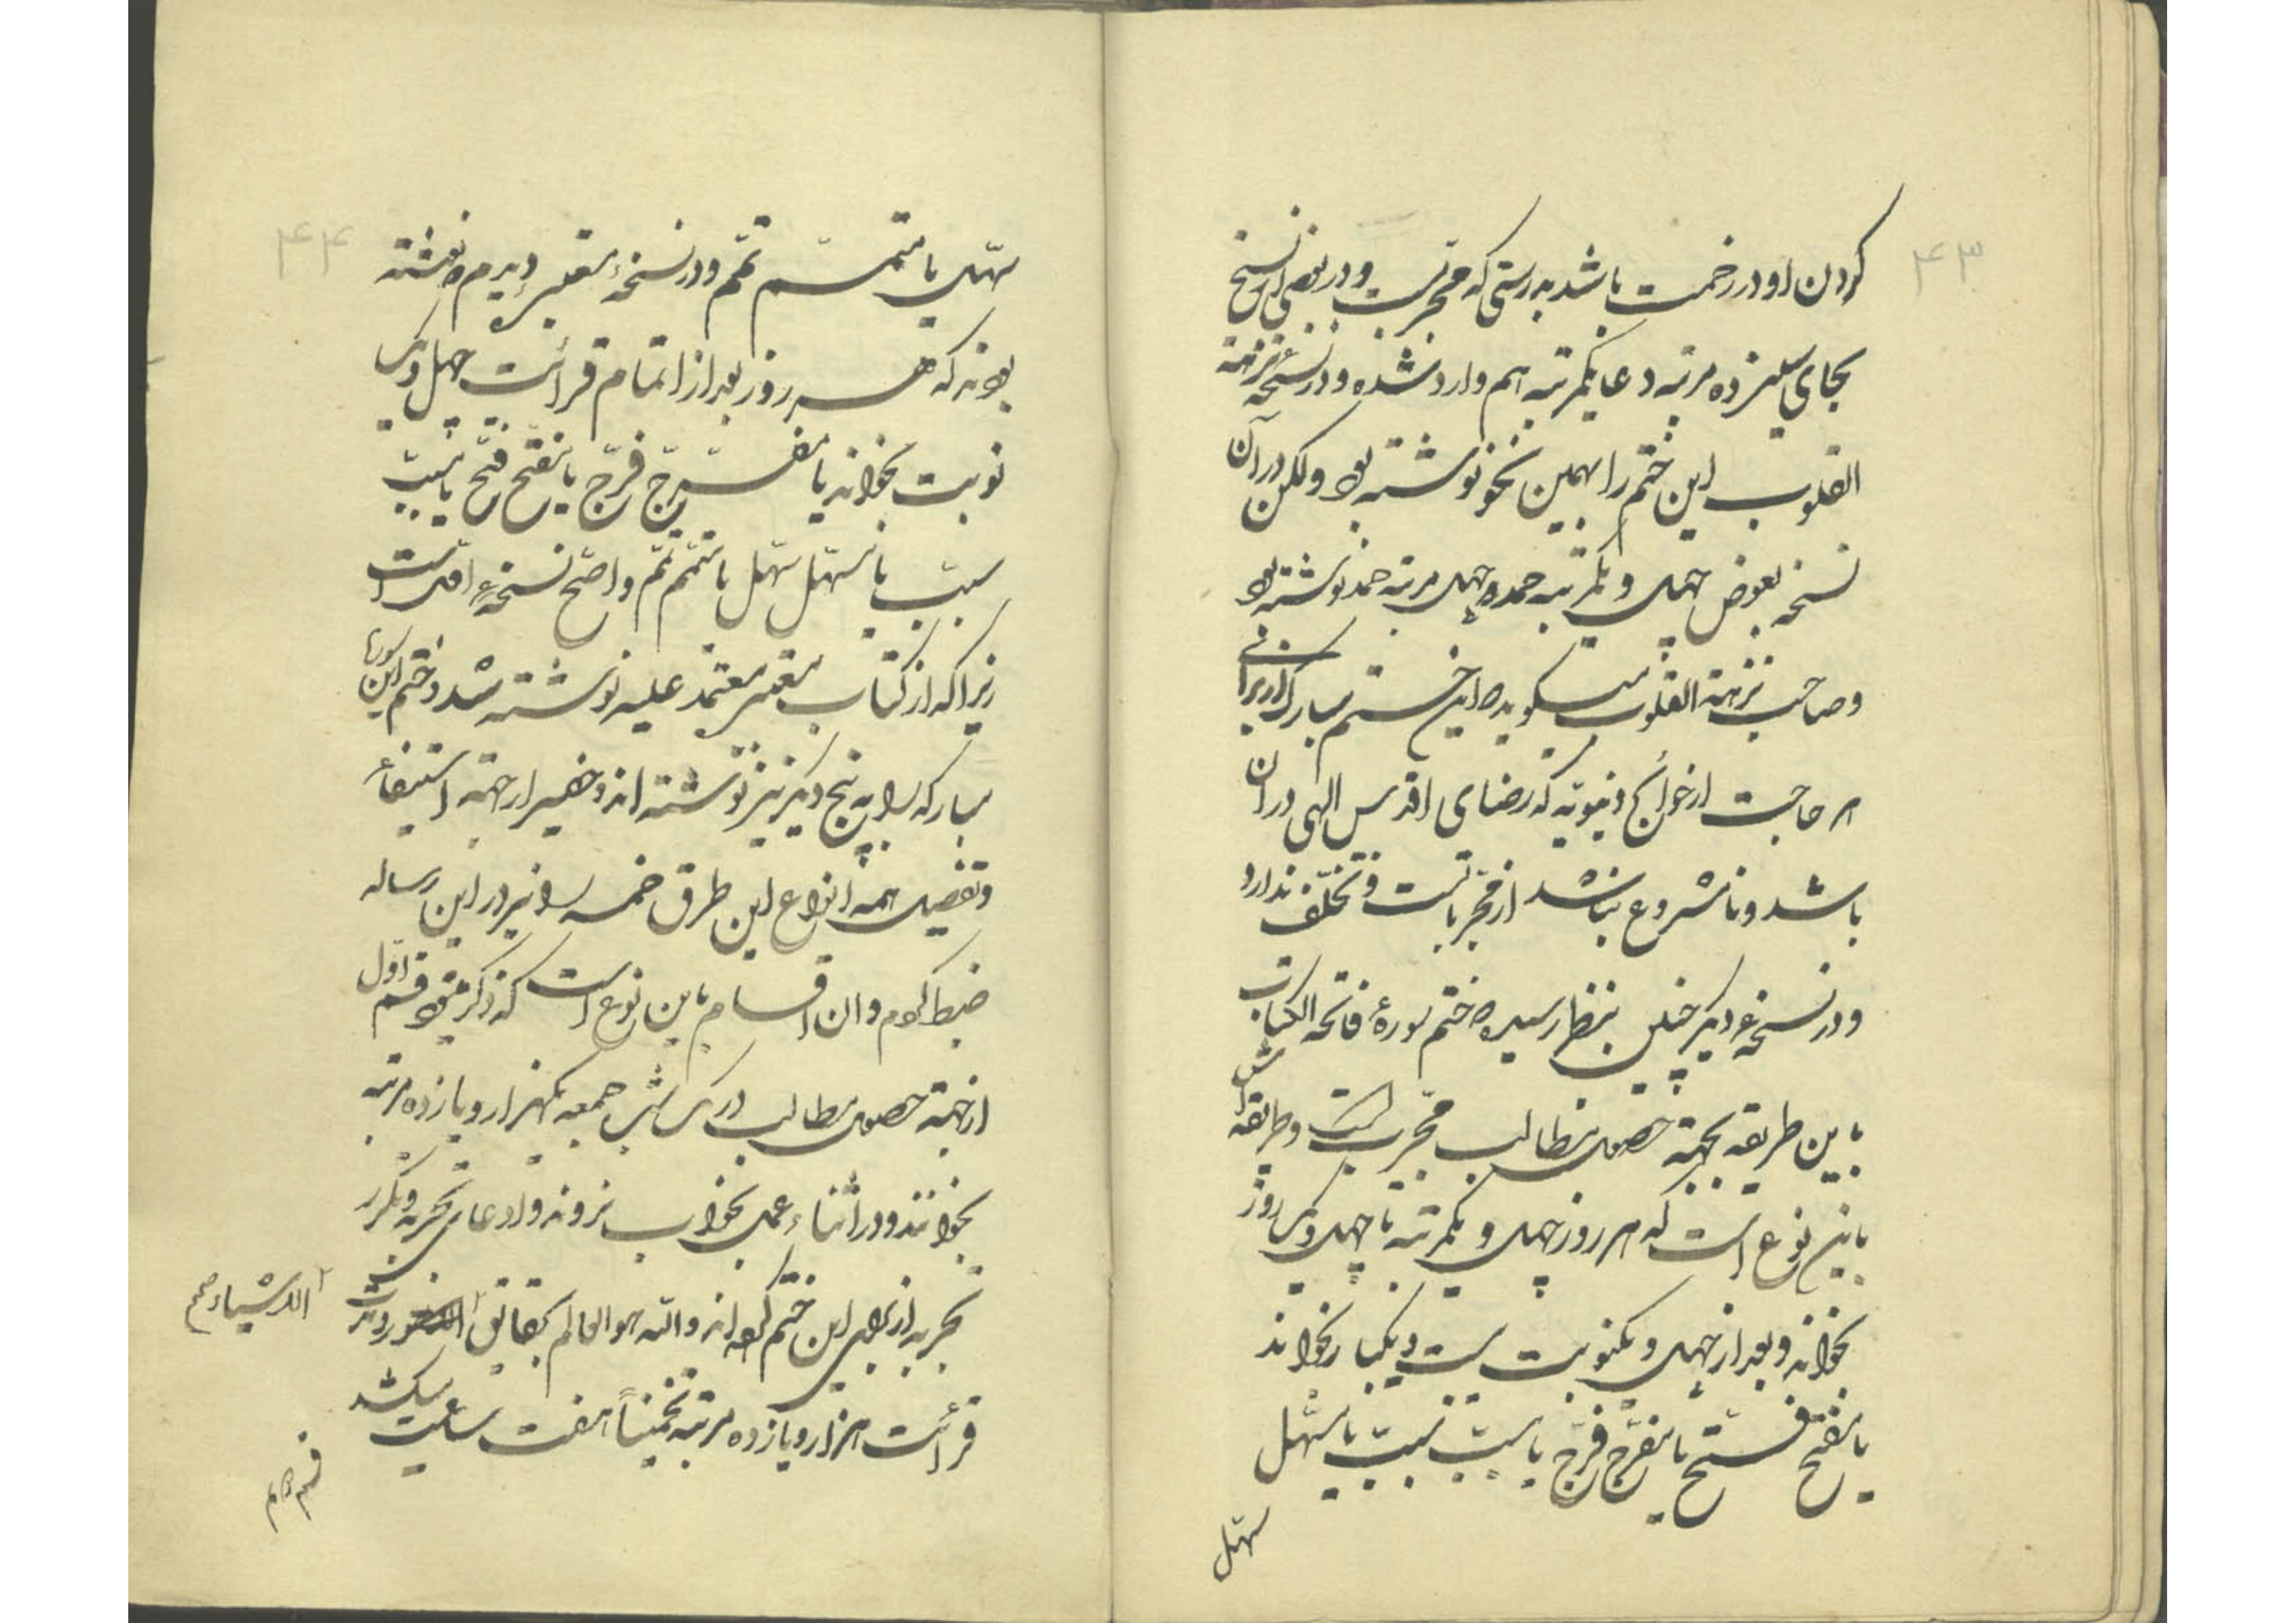 ۴۳
کردن او در زحمت باشد بدرستی که مجربست و در بعضی از نسخ
بجای سیزده مرتبه دعا یکمرتبه هم وارد شده و در نسخهٔ نزهة
القلوب این ختم را بهمین نحو نوشته بود ولکن در آن
نسخه بعوض چهل و یکمرتبه حمد چهل مرتبه حمد نوشته بود
و صاحب نزهة القلوب میگوید که این ختم مبارک از برای
هر حاجت از حوائج دنیویه که رضای اقدس الهی در آن
باشد و نامشروع نباشد از مجرباتست و تخلف ندارد
و در نسخهٔ دیگر چنین بنظر رسیده که ختم سورهٔ فاتحة الکتاب
باین طریقه بجهة حصول مطالب مجربست و طریقه
باین نوع است که هر روز چهل و یکمرتبه تا چهل و یک روز
بخواند و بعد از چهل و یکنوبت بیست و یکبار بخواند
یا مفتح فتح یا مفرج فرج یا مسبب سبب یا مسهل
سهل
۴۴
سهل یا متمم تمم و در نسخهٔ معتبر دیدم که نوشته
بودند که هر روز بعد از اتمام قرائت چهل و یک
نوبت بخواند یا مفرج فرج یا مفتح فتح یا مسبب
سبب یا مسهل سهل یا متمم تمم و اصح نسخهٔ اول است
زیرا که از کتاب معتبر معتمد علیه نوشته شد و ختم این سوره
مبارکه را به پنج دیگر نیز نوشته اند و حقیر از جهة استیفاء
و تفصیل همه انواع این طرق خمسه را نیز در این رساله
ضبط کردم و آن اقسام باین نوع است که ذکر میشود قسم اول
از جهة حصول مطالب در یک شب جمعه یکهزار و یازده مرتبه
بخوانند و در اثناء عمل بخواب نروند و ادعای تجربه و مکرر
تجربه از برای این ختم کرده اند و الله هو العالم بحقایق
الاشیاء صح
قرائت هزار و یازده مرتبه تخمیناً هفت ساعت میکشد
قسم دویم